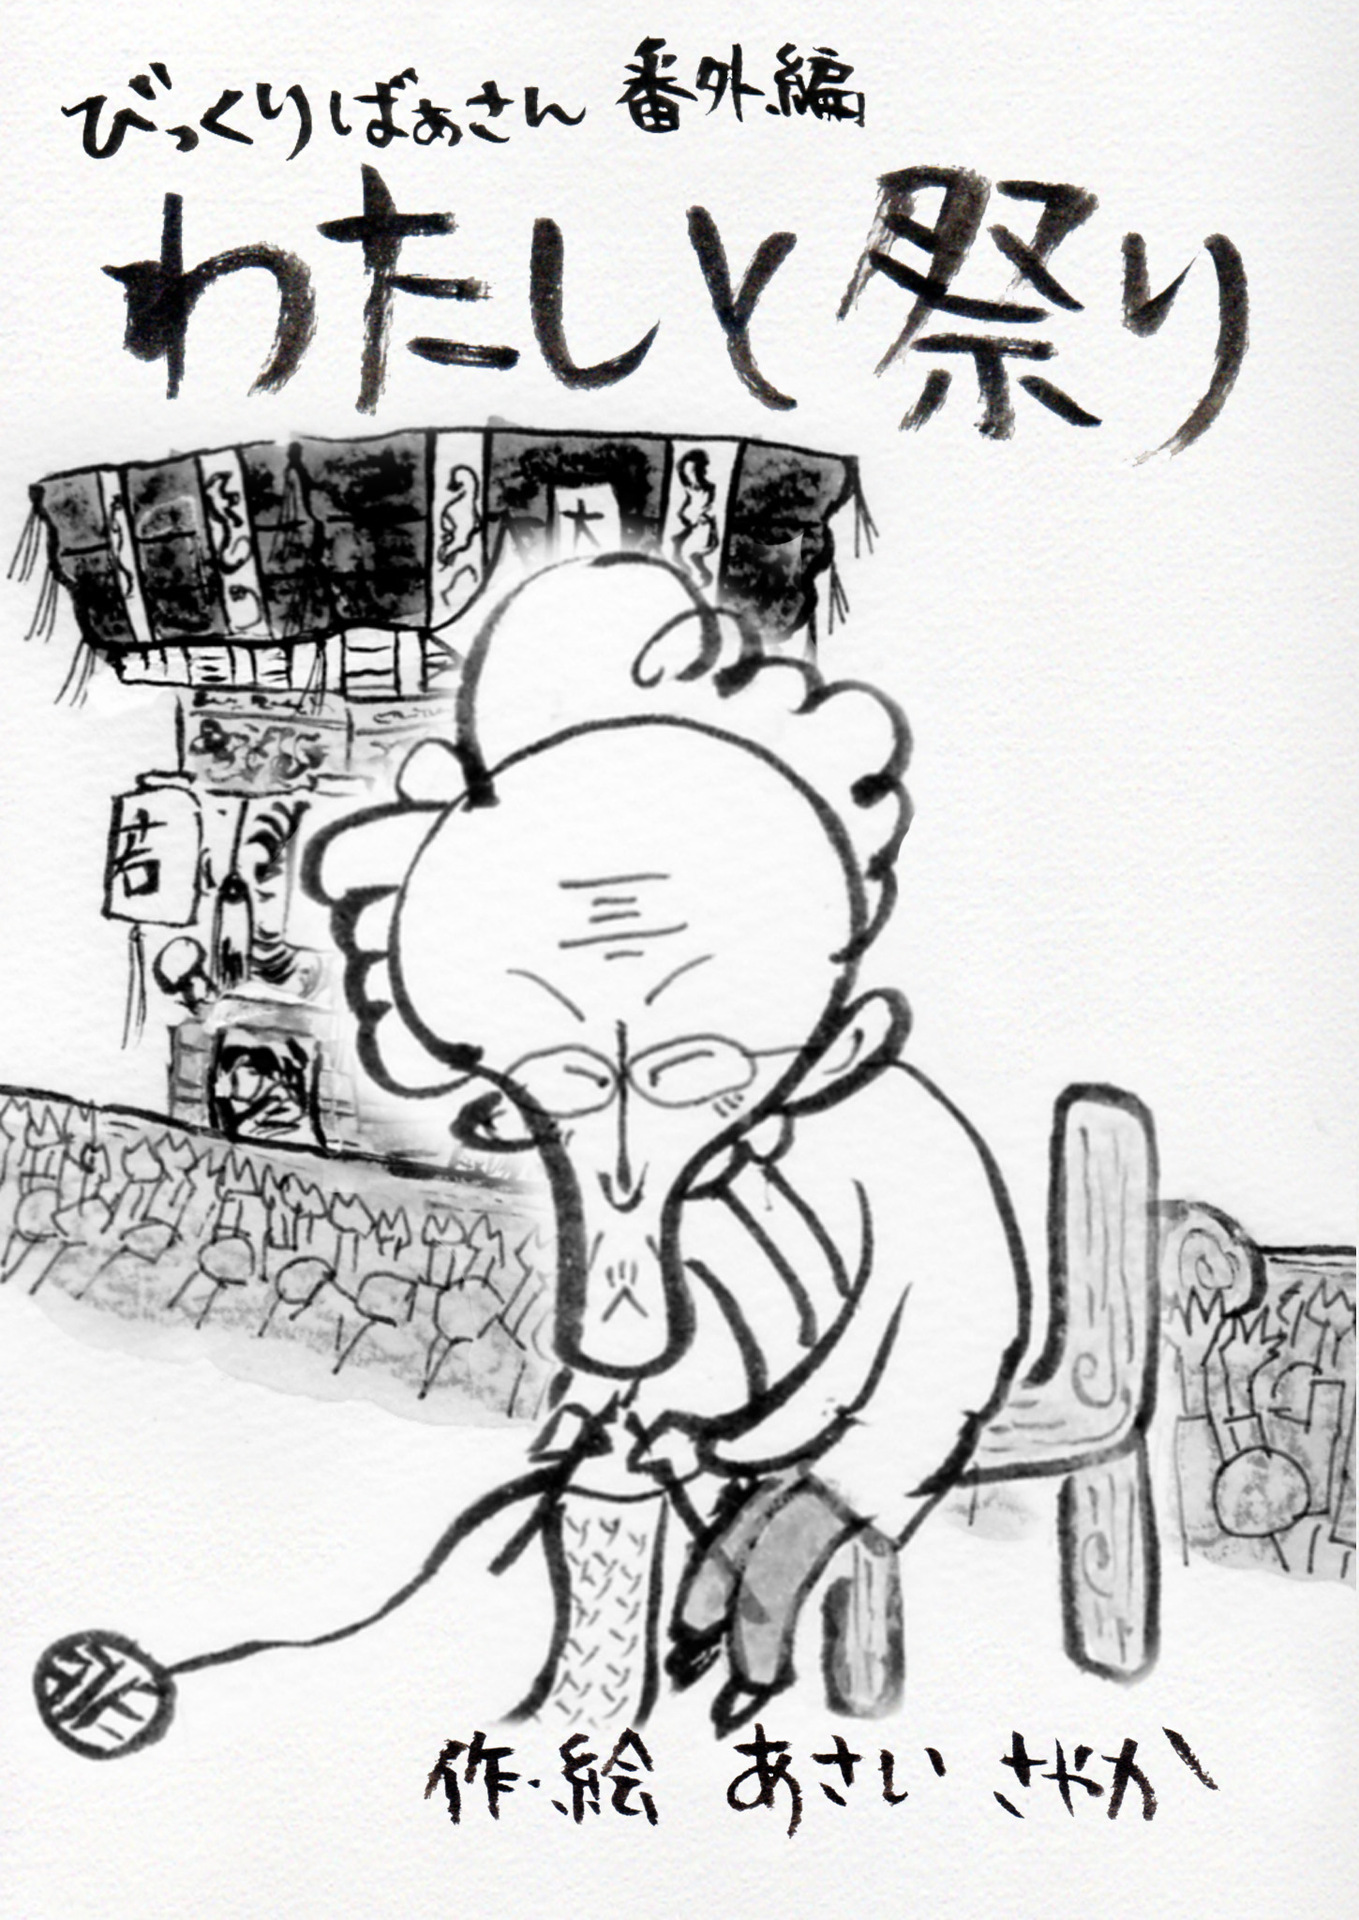 びっくりばぁさん 番外編
わたしと祭り
大
若
作・絵 あさい さやか